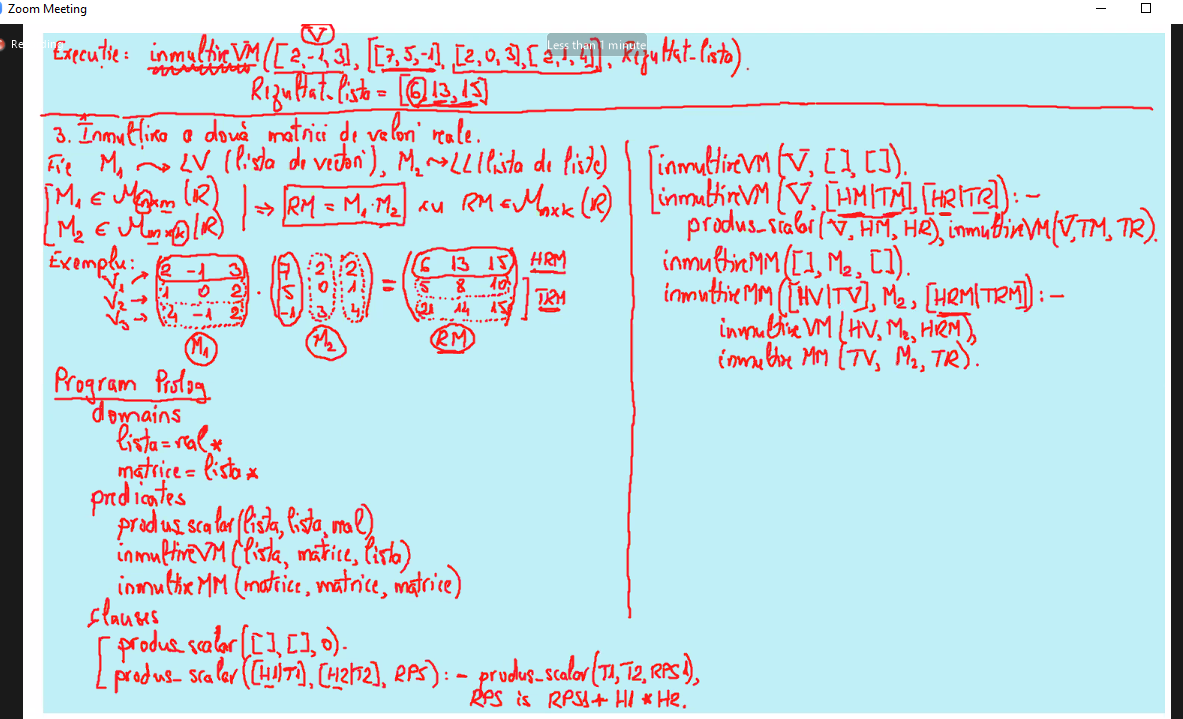 Zoom Meeting
Recording
Less than 1 minute
V
Execuție: inmultireVM([2,-1,3], [[7,5,-1], [2,0,3],[2,1,4]], Rezultat_lista).
Rezultat_lista = [6,13,15]
3. Înmulțirea a două matrici de valori reale.
Fie M1 → LV (lista de vectori), M2 → LL (lista de liste)
M1 ∈ Mnxm (R)
M2 ∈ Mmxk (R)
⇒ RM = M1·M2 cu RM ∈ Mnxk (R)
Exemplu:
V1 → 2 -1 3
V2 → 1 0 2
V3 → 4 -1 2
·
7 2 2
5 0 1
-1 3 4
=
6 13 15 HRM
5 8 10
21 14 15 TRM
M1 M2 RM
Program Prolog
domains
lista = real *
matrice = lista *
predicates
produs_scalar(lista, lista, real)
inmultireVM (lista, matrice, lista)
inmultireMM (matrice, matrice, matrice)
clauses
produs_scalar([], [], 0).
produs_scalar([H1|T1], [H2|T2], RPS) :- produs_scalar(T1, T2, RPS1),
RPS is RPS1 + H1 * H2.
inmultireVM (V, [], []).
inmultireVM (V, [HM|TM], [HR|TR]) :-
produs_scalar(V, HM, HR), inmultireVM(V, TM, TR).
inmultireMM([], M2, []).
inmultireMM ([HV|TV], M2, [HRM|TRM]) :-
inmultireVM (HV, M2, HRM),
inmultireMM (TV, M2, TR).